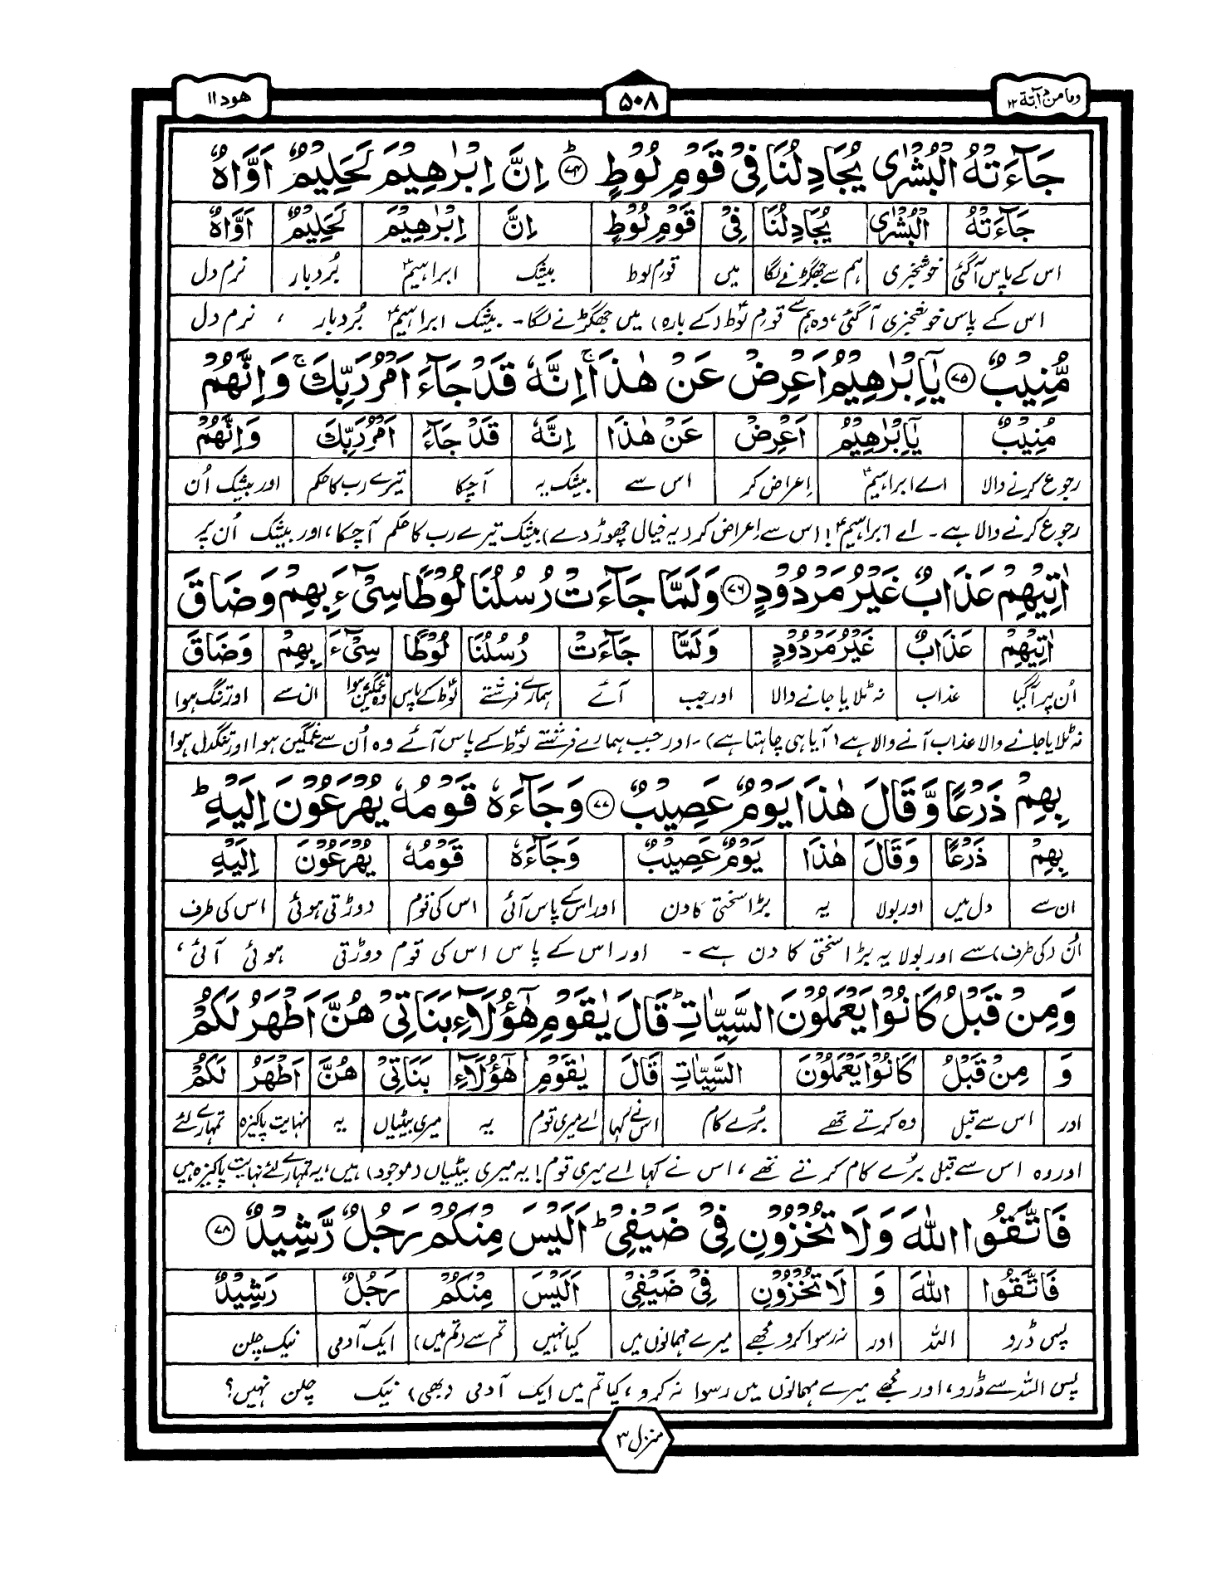 وما من دآبة ۱۲
۵۰۸
هود ۱۱
جَآءَتْهُ الْبُشْرٰى يُجَادِلُنَا فِیْ قَوْمِ لُوْطٍ ۷۴ اِنَّ اِبْرٰهِیْمَ لَحَلِیْمٌ اَوَّاهٌ
جَآءَتْهُ الْبُشْرٰى يُجَادِلُنَا فِیْ قَوْمِ لُوْطٍ اِنَّ اِبْرٰهِیْمَ لَحَلِیْمٌ اَوَّاهٌ
اس کے پاس آگئی خوشخبری ہم سے جھگڑنے لگا میں قوم لوط بیشک ابراہیمؑ بُردبار نرم دل
اس کے پاس خوشخبری آگئی، وہ ہم سے قومِ لوطؑ (کے بارہ) میں جھگڑنے لگا۔ بیشک ابراہیمؑ بُردبار ، نرم دل
مُّنِیْبٌ ۷۵ یٰۤاِبْرٰهِیْمُ اَعْرِضْ عَنْ هٰذَا ۚ اِنَّهٗ قَدْ جَآءَ اَمْرُ رَبِّكَ ۚ وَاِنَّهُمْ
مُنِیْبٌ یٰۤاِبْرٰهِیْمُ اَعْرِضْ عَنْ هٰذَا اِنَّهٗ قَدْ جَآءَ اَمْرُ رَبِّكَ وَاِنَّهُمْ
رجوع کرنے والا اے ابراہیمؑ اِعراض کر اس سے بیشک یہ آچکا تیرے رب کا حکم اور بیشک اُن
رجوع کرنے والا ہے۔ اے ابراہیمؑ! اس سے اِعراض کر (یہ خیال چھوڑ دے) بیشک تیرے رب کا حکم آچکا، اور بیشک اُن پر
اٰتِیْهِمْ عَذَابٌ غَیْرُ مَرْدُوْدٍ ۷۶ وَلَمَّا جَآءَتْ رُسُلُنَا لُوْطًا سِیْٓءَ بِهِمْ وَضَاقَ
اٰتِیْهِمْ عَذَابٌ غَیْرُ مَرْدُوْدٍ وَلَمَّا جَآءَتْ رُسُلُنَا لُوْطًا سِیْٓءَ بِهِمْ وَضَاقَ
اُن پر آگیا عذاب نہ ٹلایا جانے والا اور جب آئے ہمارے فرشتے لوطؑ کے پاس وہ غمگین ہوا ان سے اور تنگ ہوا
نہ ٹلایا جانے والا عذاب آنے والا ہے (آیا ہی چاہتا ہے)۔ اور جب ہمارے فرشتے لوطؑ کے پاس آئے وہ اُن سے غمگین ہوا اور تنگدل ہوا
بِهِمْ ذَرْعًا وَّقَالَ هٰذَا یَوْمٌ عَصِیْبٌ ۷۷ وَجَآءَهٗ قَوْمُهٗ یُهْرَعُوْنَ اِلَیْهِ ؕ
بِهِمْ ذَرْعًا وَقَالَ هٰذَا یَوْمٌ عَصِیْبٌ وَجَآءَهٗ قَوْمُهٗ یُهْرَعُوْنَ اِلَیْهِ
ان سے دل میں اور بولا یہ بڑا سختی کا دن اور اس کے پاس آئی اس کی قوم دوڑتی ہوئی اس کی طرف
اُن (کی طرف) سے اور بولا یہ بڑا سختی کا دن ہے۔ اور اس کے پاس اس کی قوم دوڑتی ہوئی آئی،
وَمِنْ قَبْلُ كَانُوْا یَعْمَلُوْنَ السَّیِّاٰتِ ؕ قَالَ یٰقَوْمِ هٰۤؤُلَآءِ بَنَاتِیْ هُنَّ اَطْهَرُ لَكُمْ
وَ مِنْ قَبْلُ كَانُوْا یَعْمَلُوْنَ السَّیِّاٰتِ قَالَ یٰقَوْمِ هٰۤؤُلَآءِ بَنَاتِیْ هُنَّ اَطْهَرُ لَكُمْ
اور اس سے قبل وہ کرتے تھے بُرے کام اس نے کہا اے میری قوم یہ میری بیٹیاں یہ نہایت پاکیزہ تمہارے لئے
اور وہ اس سے قبل بُرے کام کرتے تھے، اس نے کہا اے میری قوم! یہ میری بیٹیاں (موجود) ہیں، یہ تمہارے لئے نہایت پاکیزہ ہیں
فَاتَّقُوا اللّٰهَ وَلَا تُخْزُوْنِ فِیْ ضَیْفِیْ ؕ اَلَیْسَ مِنْكُمْ رَجُلٌ رَّشِیْدٌ ۷۸
فَاتَّقُوا اللّٰهَ وَ لَا تُخْزُوْنِ فِیْ ضَیْفِیْ اَلَیْسَ مِنْكُمْ رَجُلٌ رَشِیْدٌ
پس ڈرو اللہ اور نہ رسوا کرو مجھے میرے مہمانوں میں کیا نہیں تم سے (تم میں) ایک آدمی نیک چلن
پس اللہ سے ڈرو، اور مجھے میرے مہمانوں میں رسوا نہ کرو، کیا تم میں ایک آدمی (بھی) نیک چلن نہیں؟
منزل ۳